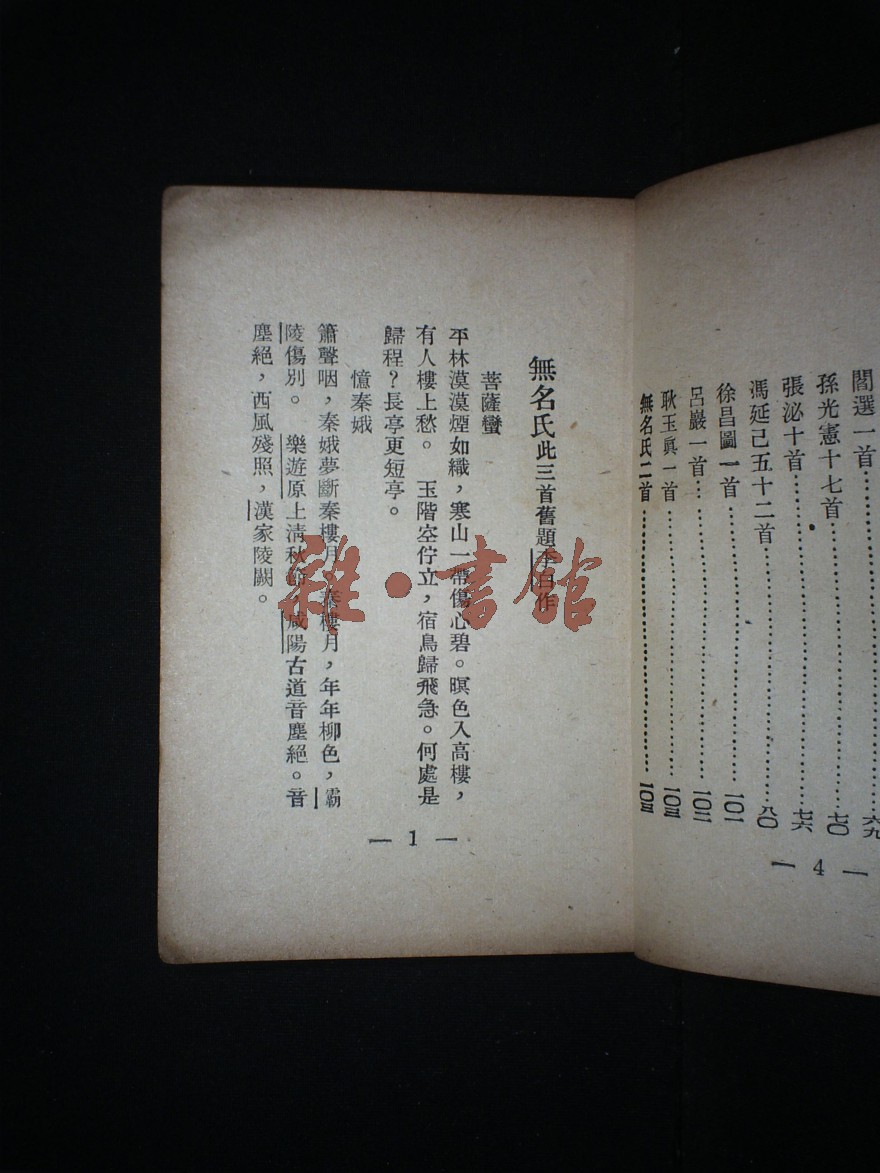 閻選一首⋯⋯⋯⋯⋯⋯⋯⋯六九
孫光憲十七首⋯⋯⋯⋯⋯⋯⋯⋯七〇
張泌十首⋯⋯⋯⋯⋯⋯⋯⋯七六
馮延己五十二首⋯⋯⋯⋯⋯⋯⋯⋯八〇
徐昌圖一首⋯⋯⋯⋯⋯⋯⋯⋯一〇一
呂巖一首⋯⋯⋯⋯⋯⋯⋯⋯一〇二
耿玉眞一首⋯⋯⋯⋯⋯⋯⋯⋯一〇三
無名氏二首⋯⋯⋯⋯⋯⋯⋯⋯一〇三
— 4 —
無名氏此三首舊題李白作
菩薩蠻
平林漠漠煙如織，寒山一帶傷心碧。暝色入高樓，
有人樓上愁。　玉階空佇立，宿鳥歸飛急。何處是
歸程？長亭更短亭。
憶秦娥
簫聲咽，秦娥夢斷秦樓月。秦樓月，年年柳色，霸
陵傷別。　樂遊原上淸秋節，咸陽古道音塵絕。音
塵絕，西風殘照，漢家陵闕。
— 1 —
雜·書館